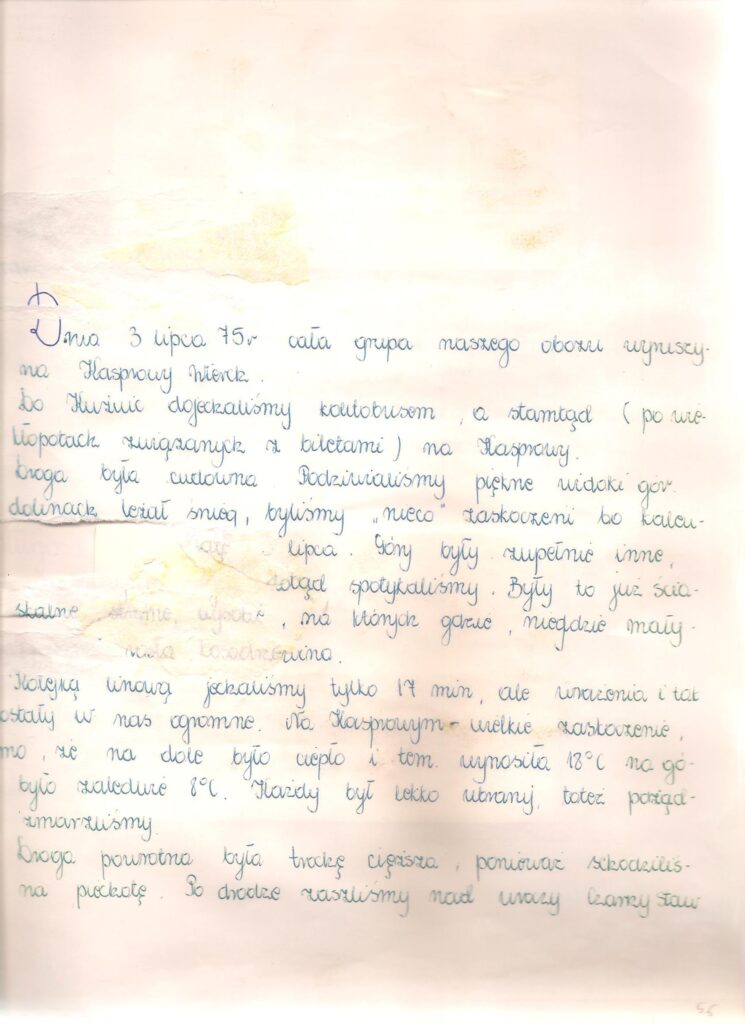 Dnia 3 lipca 75r cała grupa naszego obozu wyruszy-
na Kasprowy Wierch.
Do Kuźnic dojechaliśmy autobusem, a stamtąd (po wie-
kłopotach związanych z biletami) na Kasprowy.
Droga była cudowna. Podziwialiśmy piękne widoki gór.
dolinach leżał śnieg, byliśmy „nieco" zaskoczeni bo kalen-
3 lipca. Góry były zupełnie inne,
dotąd spotykaliśmy. Były to już ścia-
skalne strome, wysokie, na których gdzie, niegdzie mały-
rosła kosodrzewina.
Kolejką linową jechaliśmy tylko 17 min, ale wrażenia i tak
ostały w nas ogromne. Na Kasprowym - wielkie zaskoczenie,
mo, że na dole było ciepło i tem. wynosiła 18°C na gó-
było zaledwie 8°C. Każdy był lekko ubrany, toteż porząd-
zmarzliśmy.
Droga powrotna była trochę cięższa, ponieważ schodziliś-
na piechotę. Po drodze zaszliśmy nad uroczy Czarny Staw
56